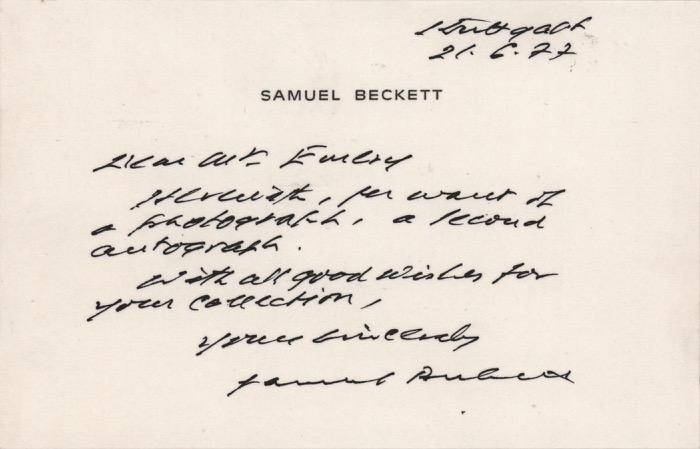 Stuttgart
21. 6. 77
SAMUEL BECKETT
Dear Mr
Herewith, for want of
a photograph, a second
autograph.
With all good wishes for
your collection,
Yours sincerely
Samuel Beckett